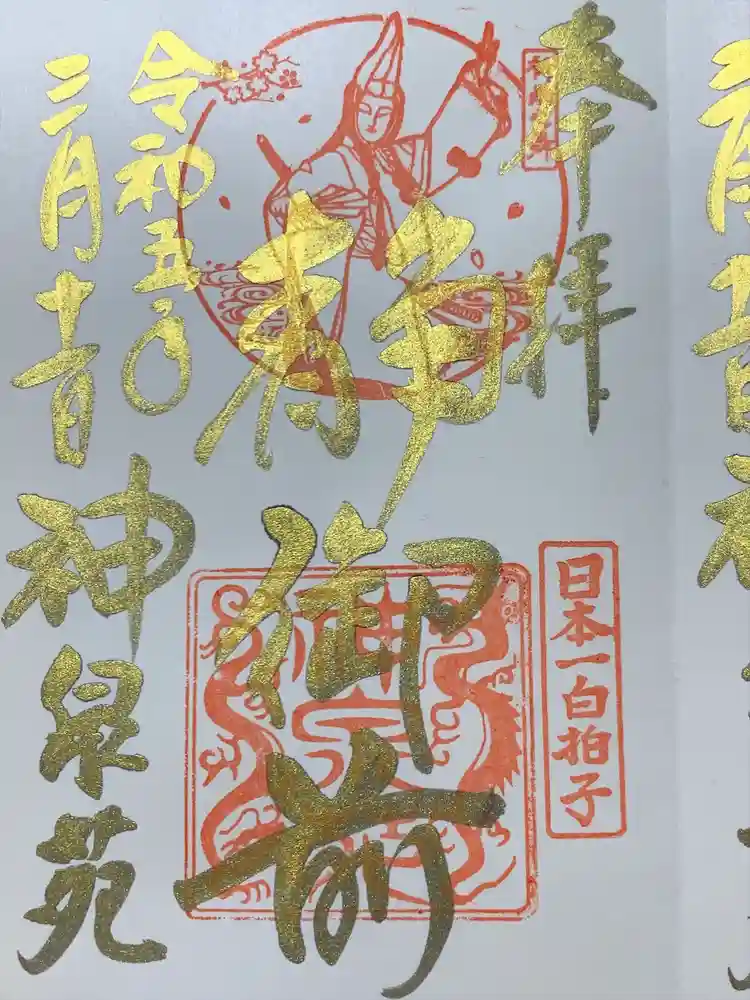 奉拝
日本一白拍子
静御前
令和五年
三月吉日
神泉苑